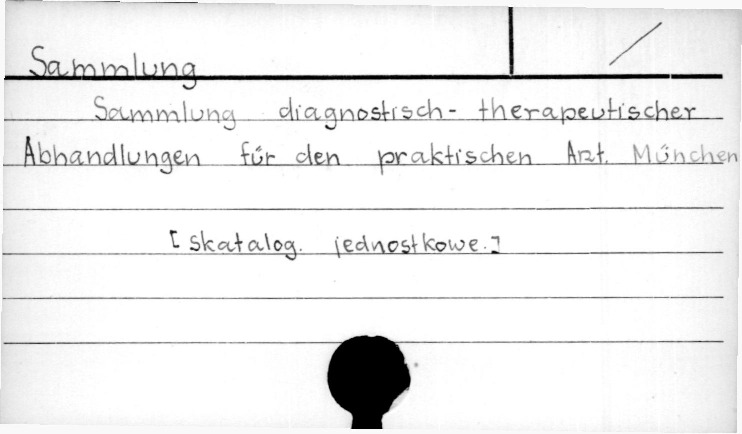 Sammlung
Sammlung diagnostisch- therapeutischer
Abhandlungen für den praktischen Arzt. München
[skatalog. jednostkowe.]